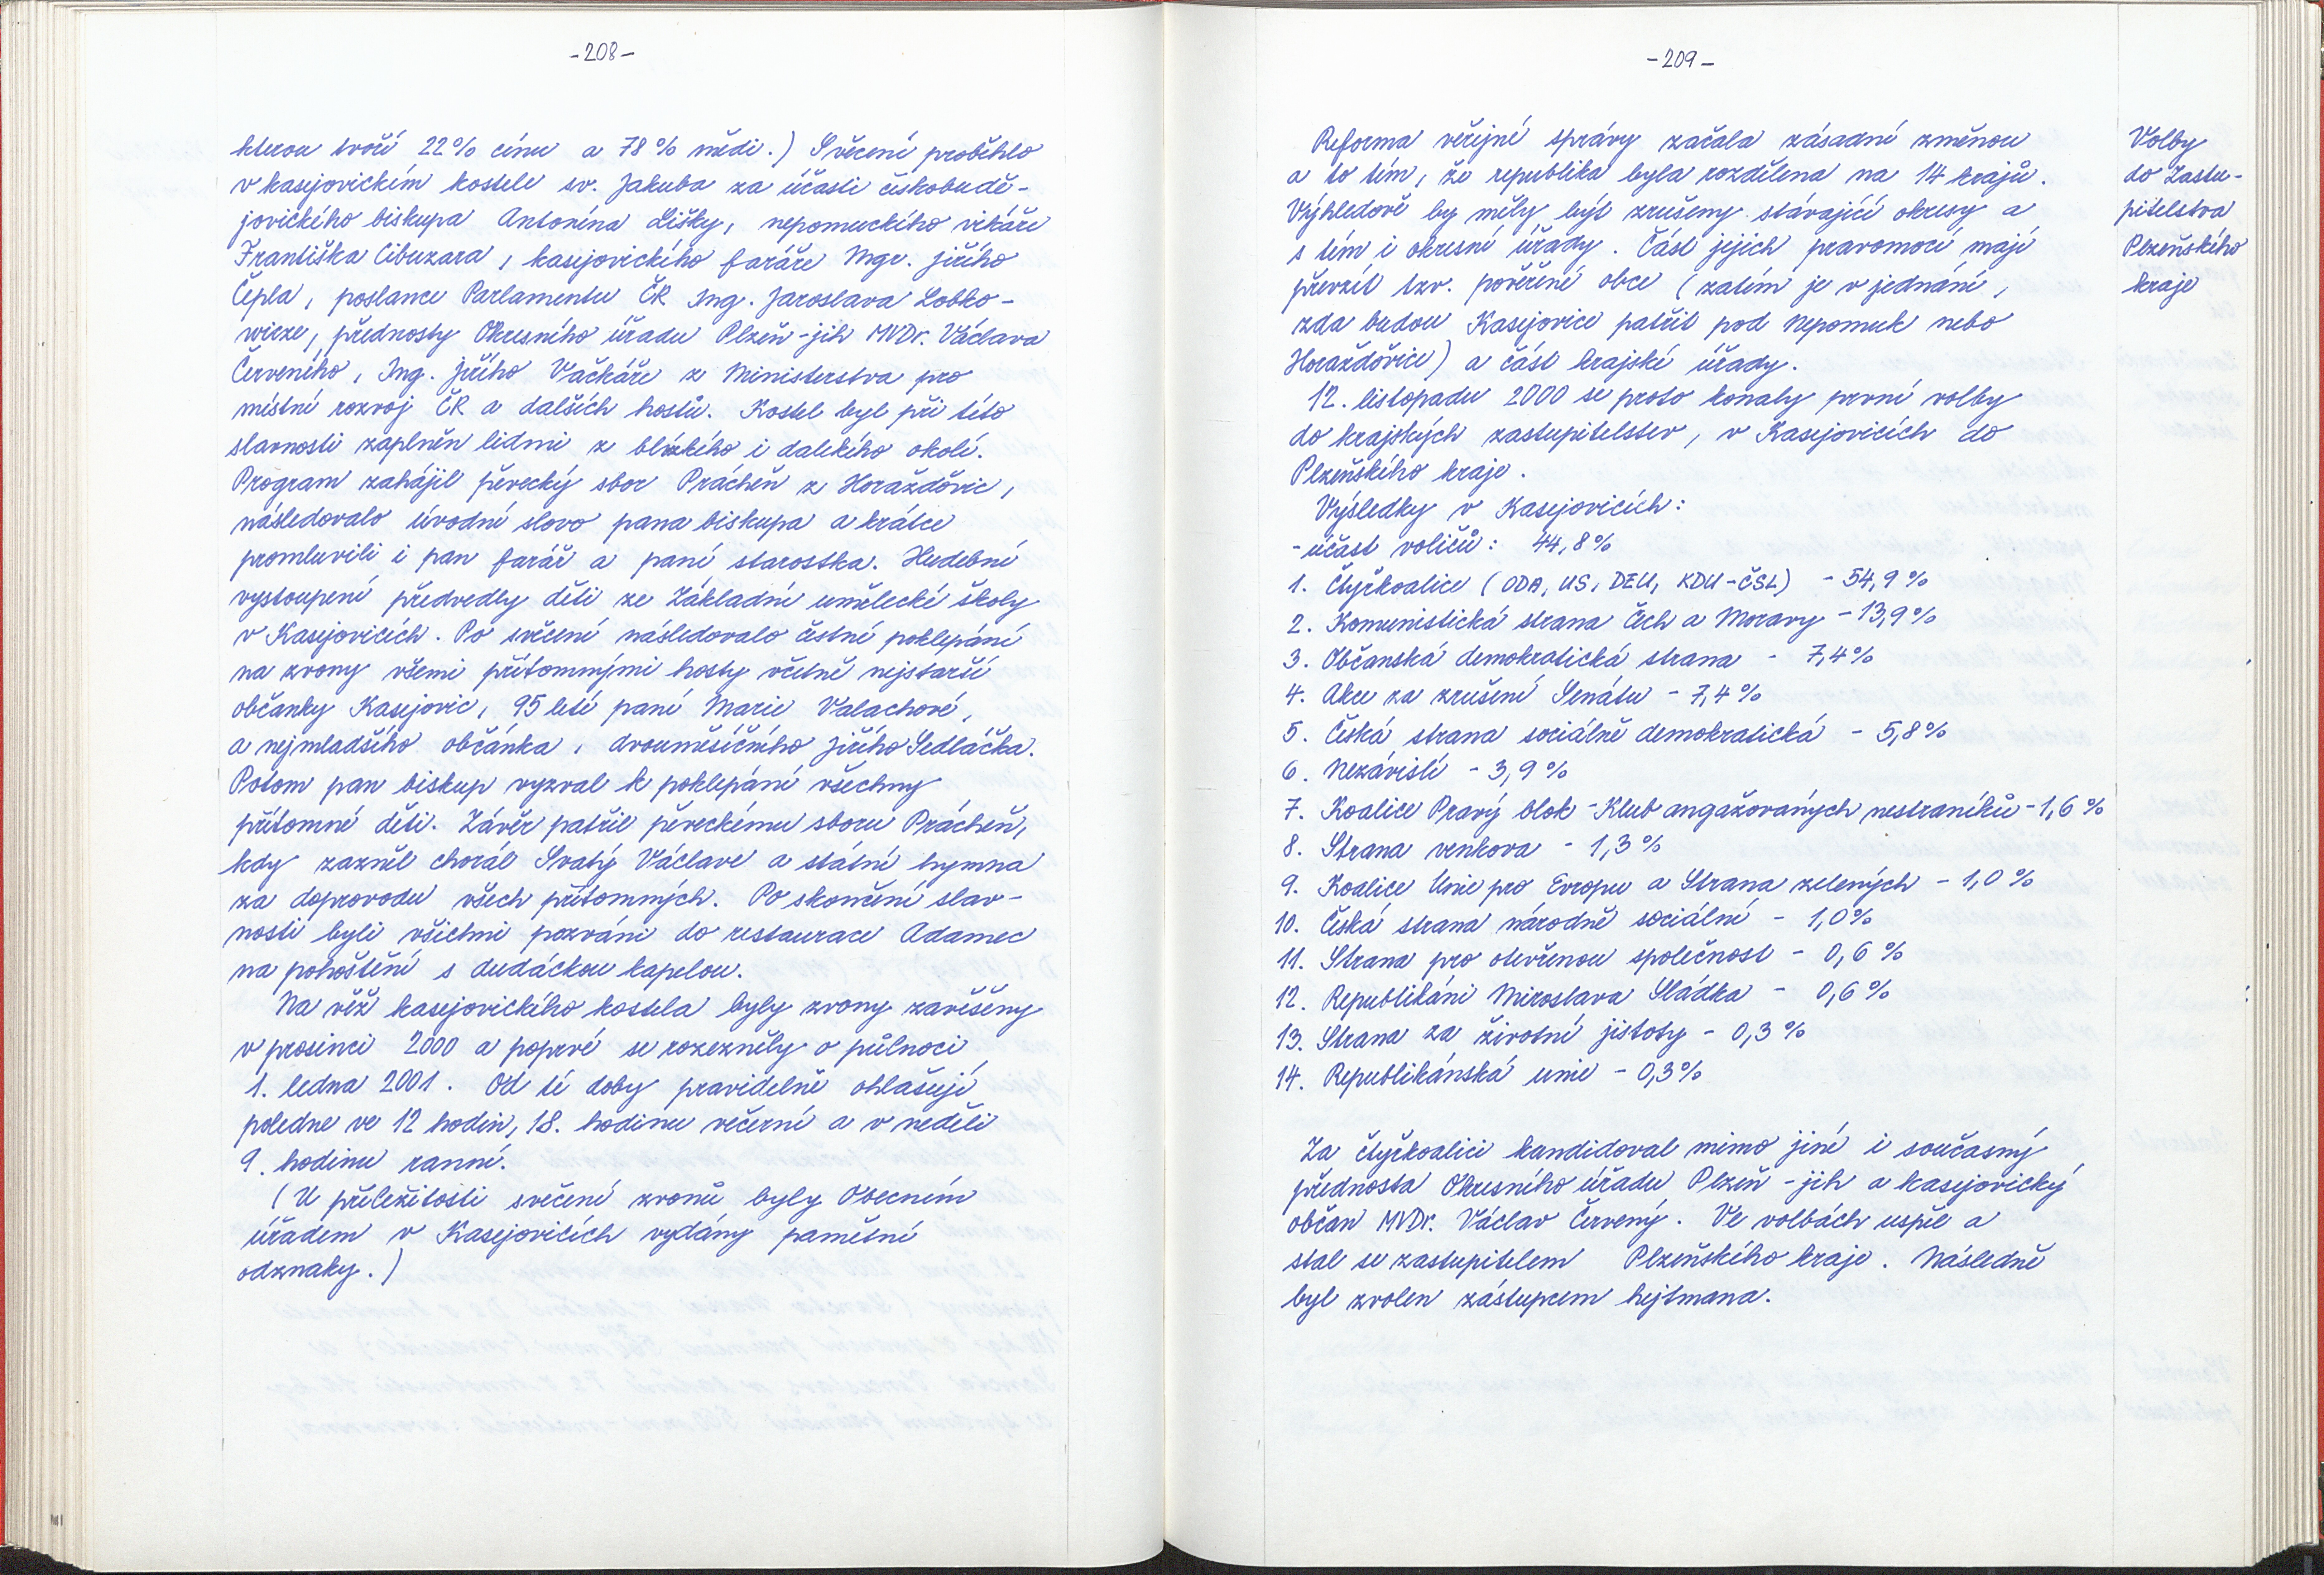 -208-
kterou tvoří 22% cínu a 78% mědi.) Svěcení proběhlo
v kasejovickém kostele sv. Jakuba za účasti českobudě-
jovického biskupa Antonína Lišky, nepomuckého vikáře
Františka Cibuzara, kasejovického faráře Mgr. Jiřího
Čepla, poslance Parlamentu ČR Ing. Jaroslava Lobko-
wicze, přednosty Okresního úřadu Plzeň-jih MVDr. Václava
Červeného, Ing. Jiřího Vačkáře z Ministerstva pro
místní rozvoj ČR a dalších hostů. Kostel byl při této
slavnosti zaplněn lidmi z blízkého i dalekého okolí.
Program zahájil pěvecký sbor Prácheň z Horažďovic,
následovalo úvodní slovo pana biskupa a krátce
promluvili i pan farář a paní starostka. Hudební
vystoupení předvedly děti ze Základní umělecké školy
v Kasejovicích. Po svěcení následovalo čestné poklepání
na zvony všemi přítomnými hosty včetně nejstarší
občanky Kasejovic, 95 leté paní Marie Valachové,
a nejmladšího občánka, dvouměsíčního Jiřího Sedláčka.
Potom pan biskup vyzval k poklepání všechny
přítomné děti. Závěr patřil pěveckému sboru Prácheň,
kdy zazněl chorál Svatý Václave a státní hymna
za doprovodu všech přítomných. Po skončení slav-
nosti byli všichni pozváni do restaurace Adamec
na pohoštění s dudáckou kapelou.
Na věž kasejovického kostela byly zvony zavěšeny
v prosinci 2000 a poprvé se rozezněly o půlnoci
1. ledna 2001. Od té doby pravidelně ohlašují
poledne ve 12 hodin, 18. hodinu večerní a v neděli
9. hodinu ranní.
(U příležitosti svěcení zvonů byly Obecním
úřadem v Kasejovicích vydány pamětní
odznaky.)
-209-
Reforma veřejné správy začala zásadní změnou
a to tím, že republika byla rozdělena na 14 krajů.
Výhledově by měly být zrušeny stávající okresy a
s tím i okresní úřady. Část jejich pravomocí mají
převzít tzv. pověřené obce (zatím je v jednání,
zda budou Kasejovice patřit pod Nepomuk nebo
Horažďovice) a část krajské úřady.
12. listopadu 2000 se proto konaly první volby
do krajských zastupitelstev, v Kasejovicích do
Plzeňského kraje.
Výsledky v Kasejovicích:
- účast voličů: 44,8%
1. Čtyřkoalice (ODA, US, DEU, KDU-ČSL) - 54,9%
2. Komunistická strana Čech a Moravy - 13,9%
3. Občanská demokratická strana - 7,4%
4. Akce za zrušení Senátu - 7,4%
5. Česká strana sociálně demokratická - 5,8%
6. Nezávislí - 3,9%
7. Koalice Pravý blok - Klub angažovaných nestraníků - 1,6%
8. Strana venkova - 1,3%
9. Koalice Unie pro Evropu a Strana zelených - 1,0%
10. Česká strana národně sociální - 1,0%
11. Strana pro otevřenou společnost - 0,6%
12. Republikáni Miroslava Sládka - 0,6%
13. Strana za životní jistoty - 0,3%
14. Republikánská unie - 0,3%
Za čtyřkoalici kandidoval mimo jiné i současný
přednosta Okresního úřadu Plzeň-jih a kasejovický
občan MVDr. Václav Červený. Ve volbách uspěl a
stal se zastupitelem Plzeňského kraje. Následně
byl zvolen zástupcem hejtmana.
Volby
do Zastu-
pitelstva
Plzeňského
kraje